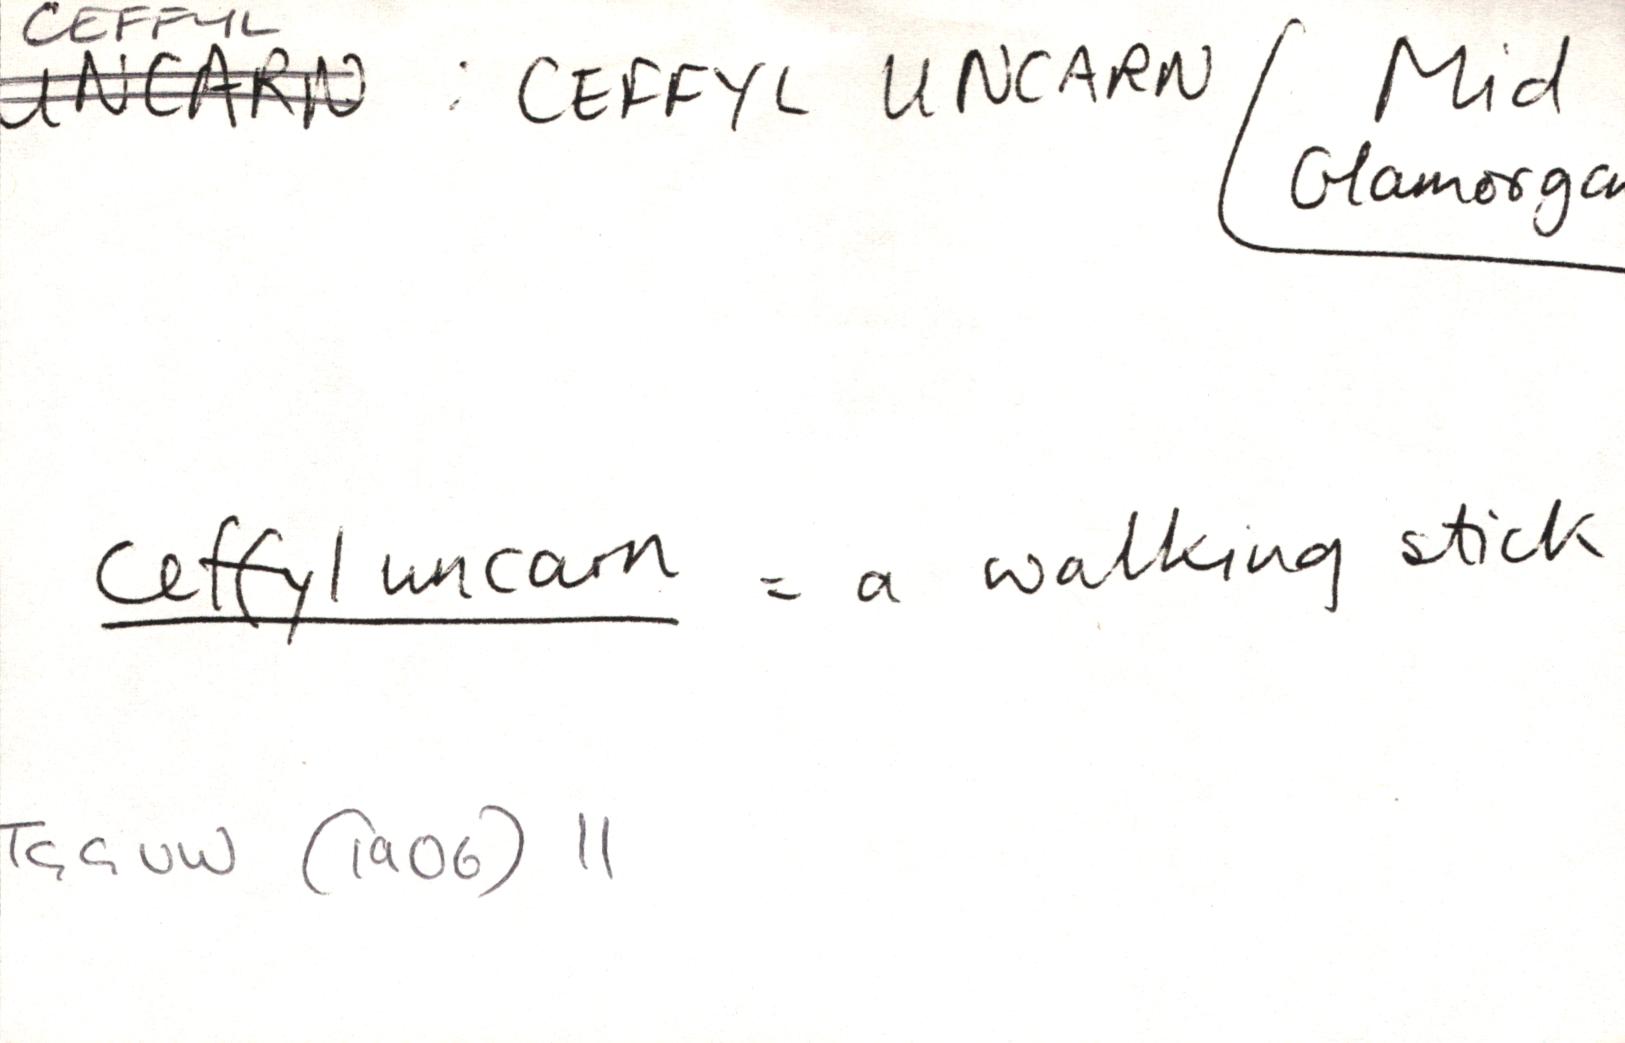 CEFFYL
UNCARN : CEFFYL UNCARN Mid
Glamorgan
ceffyl uncarn = a walking stick
TGGUW (1906) 11